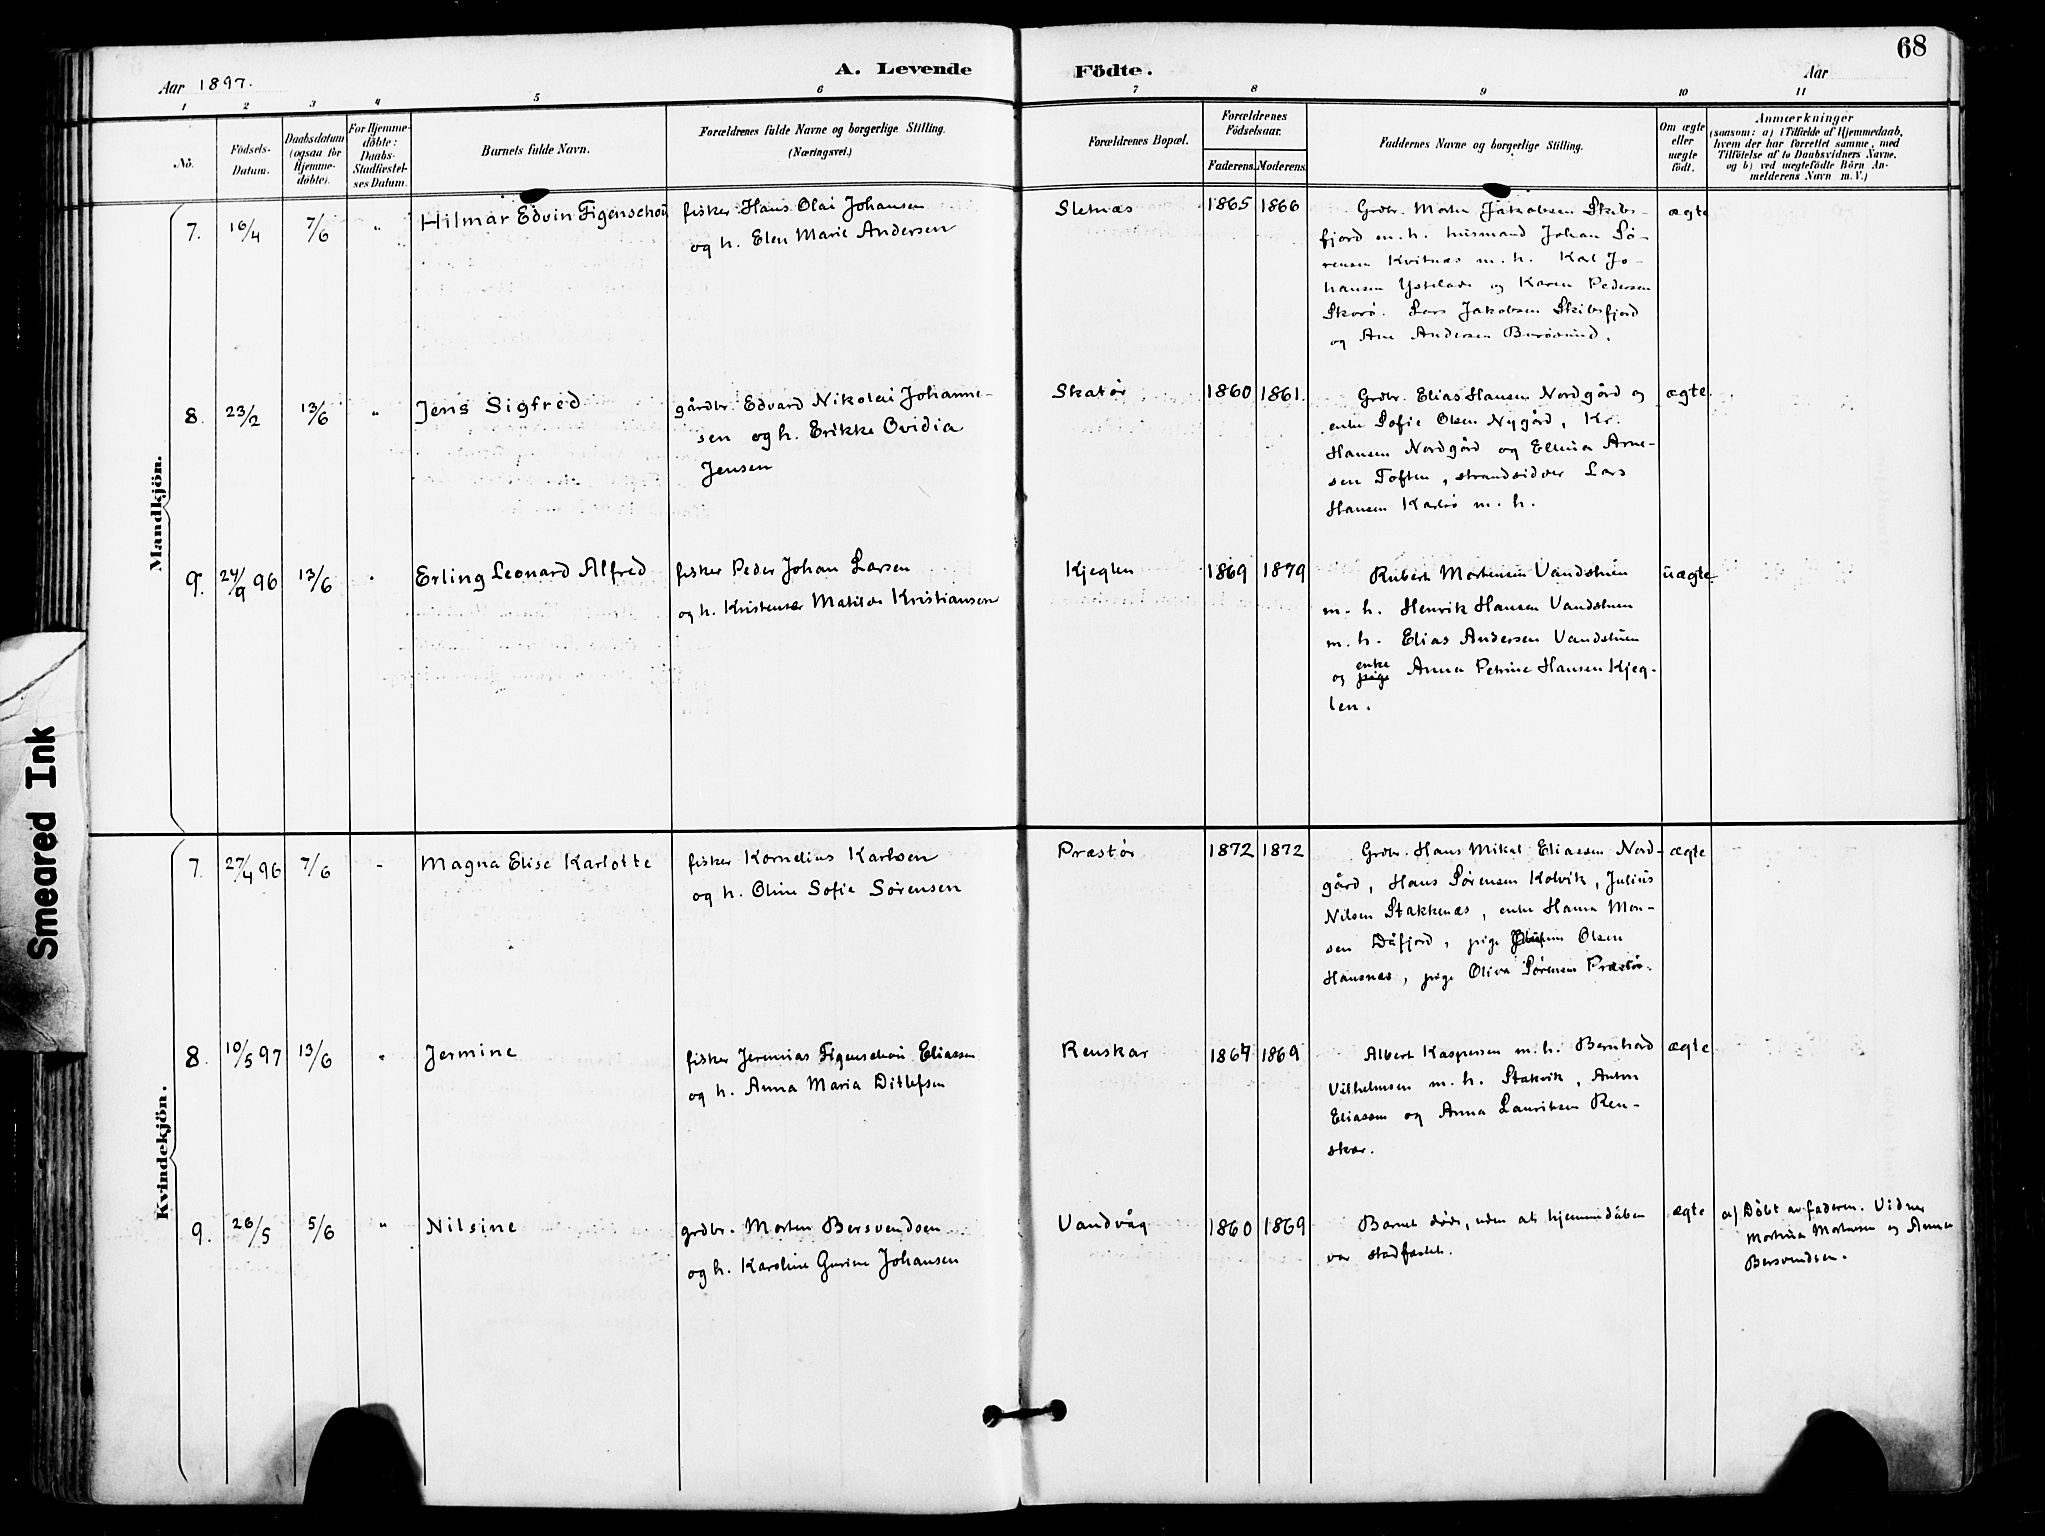 68
Aar 1897.
A. Levende Födte.
Aar
1 2 3 4 5 6 7 8 9 10 11
No.
Födsels-
Datum.
Daabsdatum
(ogsaa for
Hjemme-
döbte).
For Hjemme-
döbte:
Daabs-
Stadfæstel-
ses Datum.
Barnets fulde Navn.
Forældrenes fulde Navne og borgerlige Stilling.
(Næringsvei.)
Forældrenes Bopæl.
Forældrenes
Födselsaar.
Faderens. Moderens.
Faddernes Navne og borgerlige Stilling.
Om ægte
eller
uægte
födt.
Anmærkninger
(saasom: a) i Tilfælde af Hjemmedaab,
hvem der har forrettet samme, med
Tilföielse af to Daabsvidners Navne.
og b) ved uægtefödte Börn An-
melderens Navn m. V.)
Mandkjön.
7. 16/4 7/6 " Hilmar Edvin Figenschou
fisker Hans Olai Johansen
og h. Elen Marie Andersen
Sletnæs 1865 1866
Grdbr. Morten Jakobsen Skibs-
fjord m. h. husmand Johan Sø-
rensen Kvitnæs m. h. Karl Jo-
hansen og Karen Pedersen
Skorö. Lars Jakobsen Skibsfjord
og Ane Andersen Burösund.
ægte
8. 23/2 13/6 " Jens Sigfred
gårdbr. Edvard Nikolai Johanne-
sen og h. Erikke Ovidia
Jensen
Skatör 1860 1861.
Grdbr. Elias Hansen Nordgård og
enke Sofie Olsen Nygård, Kr.
Hansen Nordgård og Ellina Arne-
sen Toften, strandsidder Lars
Hansen Karlsö m. h.
ægte.
9. 24/9 96 13/6 " Erling Leonard Alfred
fisker Peder Johan Larsen
og h. Kristense Matilde Kristiansen
Kjeglen 1869 1879
Rubert Mortensen Vandstuen
m. h. Henrik Hansen Vandstuen
m. h. Elias Andersen Vandstuen
enke
og pige Anna Petrine Hansen Kjeg-
len.
uægte.
Kvindekjön.
7. 27/4 96 7/6 - Magna Elise Karlotte
fisker Kornelius Karlsen
og h. Oline Sofie Sørensen
Præstör 1872 1872
Grdbr. Hans Mikal Eliassen Nord-
gård, Hans Sørensen Kolvik, Julius
Nilsen Stakkenæs, enke Hanna Mon-
sen Dåfjord, pige Olsen
Hansnæs, pige Oliva Sørensen Præstör.
ægte
8. 10/5 97 13/6 " Jermine
fisker Jeremias Figenschou Eliassen
og h. Anna Maria Ditlefsen
Renskar 1867 1869
Albert Kaspersen m. h. Bernhard
Vilhelmsen m. h. Stakvik, Anton
Eliassen og Anna Lauritsen Ren-
skar.
ægte
9. 26/5 5/6 " Nilsine
grdbr. Morten Bersvendsen
og h. Karoline Gurine Johansen
Vandvåg 1860 1869
Barnet døde, uden at hjemmedåben
var stadfæstet.
ægte
a) Döbt av faderen. Vidner
Mortensen og Anna
Bersvendsen.
Smeared Ink